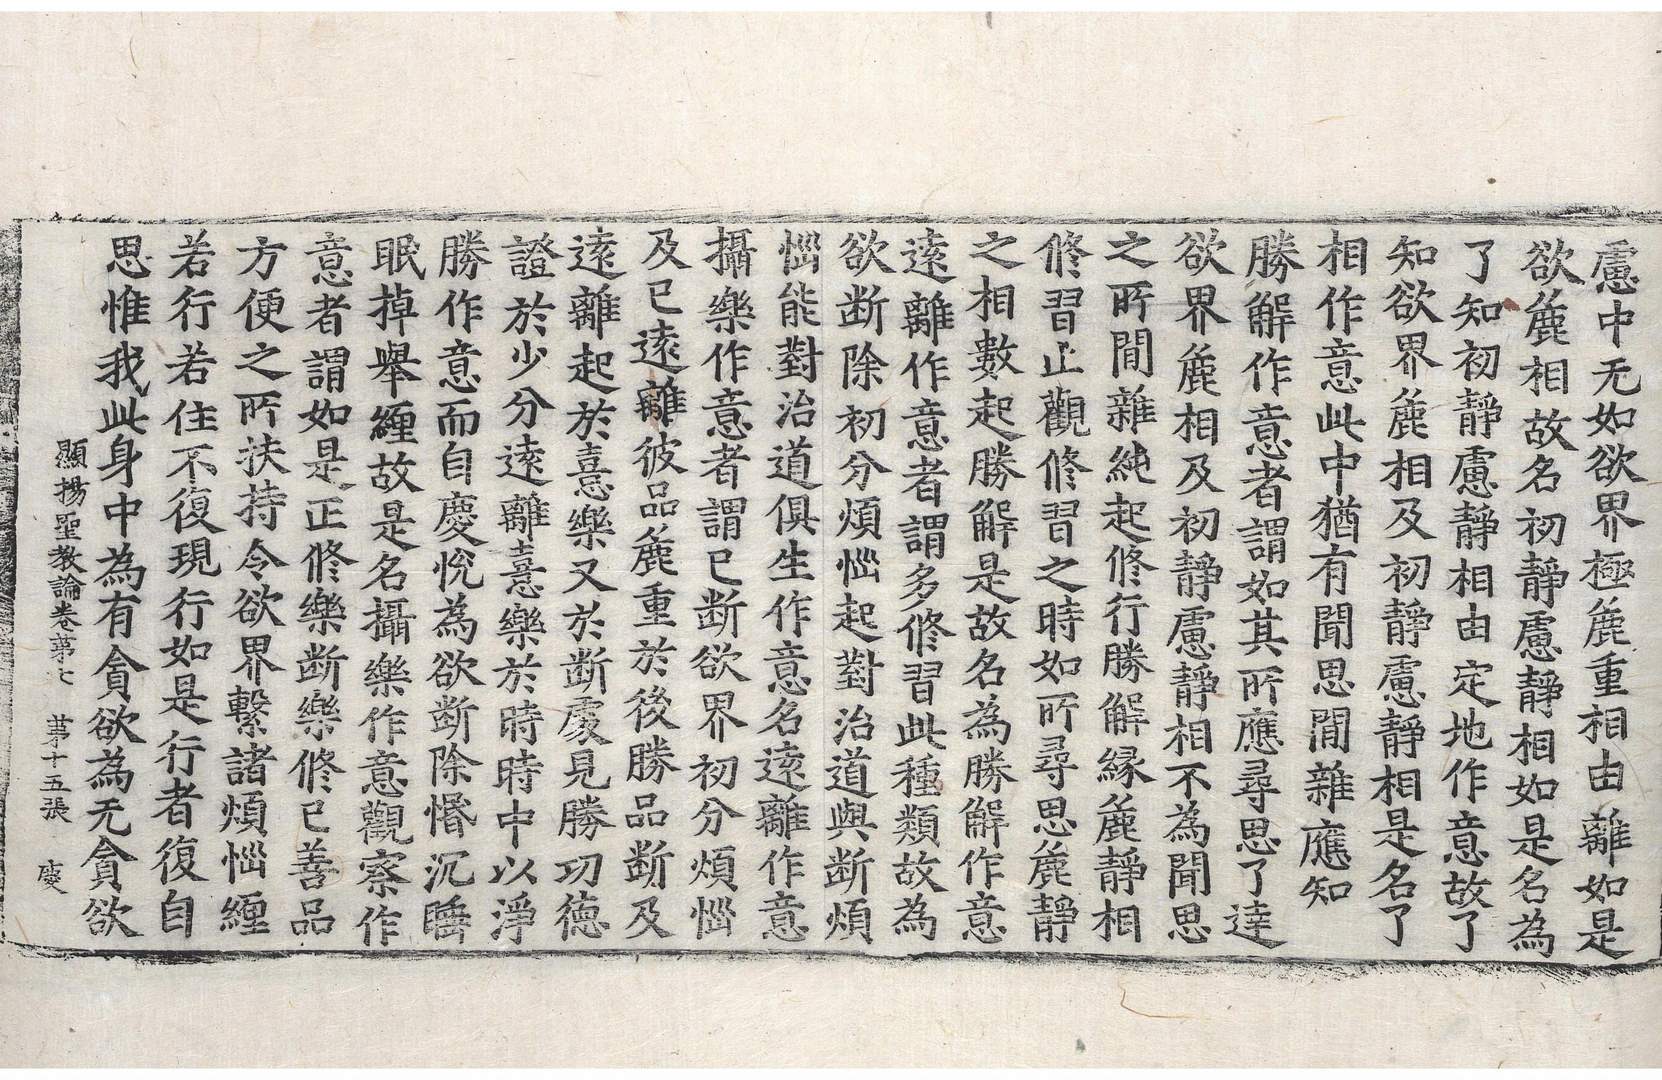 慮中无如欲界極麁重相由離如是
欲麁相故名初靜慮靜相如是名為
了知初靜慮靜相由定地作意故了
知欲界麁相及初靜慮靜相是名了
相作意此中猶有聞思閒雜應知
勝解作意者謂如其所應尋思了達
欲界麁相及初靜慮靜相不為聞思
之所閒雜純起修行勝解緣麁靜相
修習止觀修習之時如所尋思麁靜
之相數起勝解是故名為勝解作意
遠離作意者謂多修習此種類故為
欲断除初分煩惱起對治道與断煩
惱能對治道俱生作意名遠離作意
攝樂作意者謂已断欲界初分煩惱
及已遠離彼品麁重於後勝品断及
遠離起於憙樂又於断處見勝功德
證於少分遠離憙樂於時時中以淨
勝作意而自慶悅為欲断除惛沉睡
眠掉舉纏故是名攝樂作意觀察作
意者謂如是正修樂断樂修已善品
方便之所扶持令欲界繫諸煩惱纏
若行若住不復現行如是行者復自
思惟我此身中為有貪欲為无貪欲
顯揚聖教論卷第七 第十五張 慶